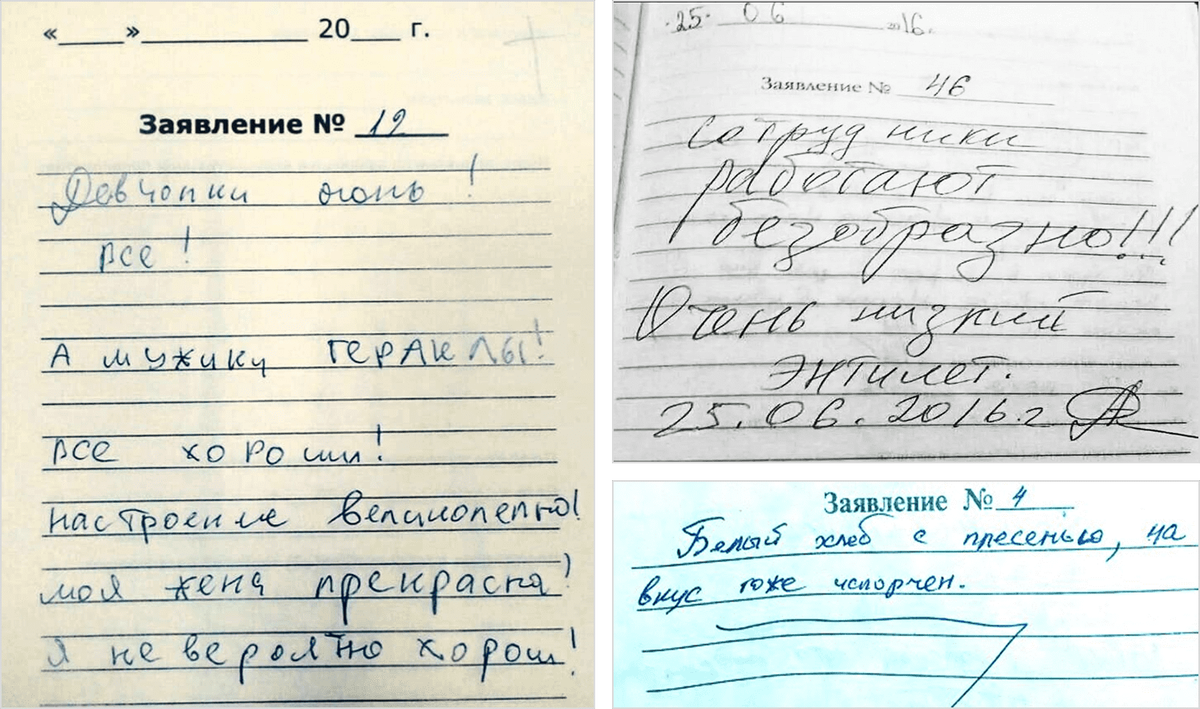 «____»__________ 20___ г.
Заявление № 12
Девчонки огонь!
все!
А мужики ГЕРАКЛЫ!
все хороши!
настроение великолепно!
моя жена прекрасна!
Я не вероятно хорош!
25. 06 2016.
Заявление № 46
Сотрудники
работают
безобразно!!!
Очень низкий
энтилет.
25.06.2016.г
Заявление № 4
Белый хлеб с пресенью, на
вкус тоже испорчен.